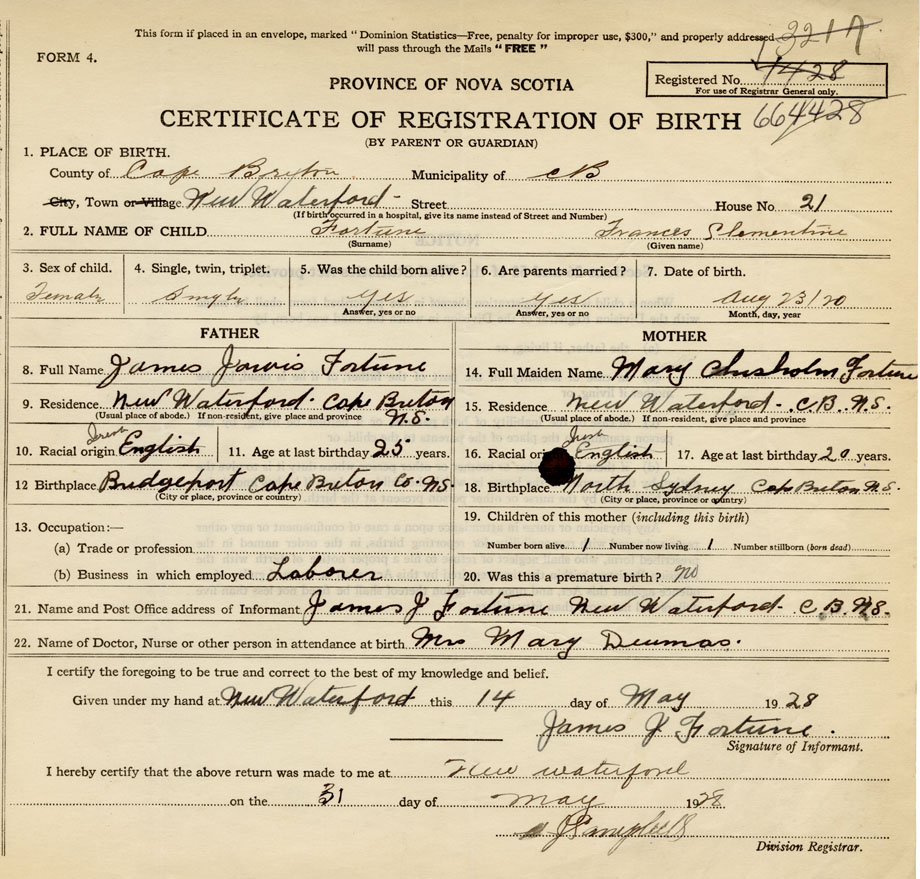 This form if placed in an envelope, marked "Dominion Statistics—Free, penalty for improper use, $300," and properly addressed
will pass through the Mails "FREE"
3217
FORM 4.
Registered No. 1428
For use of Registrar General only.
PROVINCE OF NOVA SCOTIA
CERTIFICATE OF REGISTRATION OF BIRTH 664428
(BY PARENT OR GUARDIAN)
1. PLACE OF BIRTH.
County of Cape Breton Municipality of CB
City, Town or Village New Waterford- Street House No. 21
(If birth occurred in a hospital, give its name instead of Street and Number)
2. FULL NAME OF CHILD Fortune Frances Clementine
(Surname) (Given name)
3. Sex of child. 4. Single, twin, triplet. 5. Was the child born alive? 6. Are parents married? 7. Date of birth.
Female Single Yes Yes Aug 23/20
Answer, yes or no Answer, yes or no Month, day, year
FATHER MOTHER
8. Full Name James Jarvis Fortune 14. Full Maiden Name Mary Chisholm Fortune
9. Residence New Waterford. Cape Breton N.S. 15. Residence New Waterford. C.B. N.S.
(Usual place of abode.) If non-resident, give place and province (Usual place of abode.) If non-resident, give place and province
Irish Irish
10. Racial origin English 11. Age at last birthday 25 years. 16. Racial ori English 17. Age at last birthday 20 years.
12 Birthplace Bridgeport Cape Breton Co. NS. 18. Birthplace North Sydney Cape Breton N.S.
(City or place, province or country) (City or place, province or country)
13. Occupation:— 19. Children of this mother (including this birth)
(a) Trade or profession Number born alive 1 Number now living 1 Number stillborn (born dead)
(b) Business in which employed Laborer 20. Was this a premature birth? no
21. Name and Post Office address of Informant James J Fortune New Waterford. C.B. N.S.
22. Name of Doctor, Nurse or other person in attendance at birth Mrs Mary
I certify the foregoing to be true and correct to the best of my knowledge and belief.
Given under my hand at New Waterford this 14 day of May 1928
James J Fortune.
Signature of Informant.
I hereby certify that the above return was made to me at New Waterford
on the 31 day of May 1928
Division Registrar.